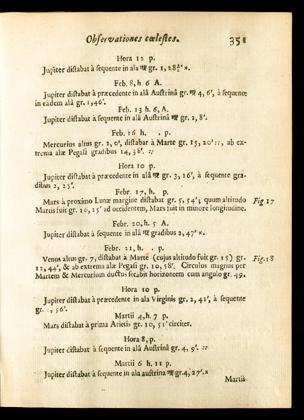 Observationes cœlestes. 351
Hora 12 p.
Jupiter distabat à sequente in ala ♍ gr. 1, 28
Feb. 8, h 6 A.
Jupiter distabat à præcedente in alâ Austrinâ ♍ 4, 6', à sequente
in eâdem alâ gr. 1, 46'.
Feb. 13 h. 6, A.
Jupiter distabat à sequente in alâ Austrinâ ♍ gr. 2, 8'.
Feb. 16 h. . p.
Mercurius altus gr. 2, 0', distabat à Marte gr. 15, 20' ::, ab ex-
trema alæ Pegasi gradibus 14, 38'. ::
Hora 10 p.
Jupiter distabat à præcedente in alâ ♍ gr. 3, 16', à sequente gra-
dibus 2, 23'.
Febr. 17, h. p.
Mars à proximo Lunæ margine distabat gr. 5, 54'; quum altitudo
Martis fuit gr. 10, 25' ad occidentem, Mars fuit in minore longitudine.
Fig. 17
Febr. 20, h. 5 A.
Jupiter distabat à sequente in ala ♍ gradibus 2, 47' ×.
Febr. 21, h. . p.
Venus altus gr. 7, distabat à Marte (cujus altitudo fuit gr. 15) gr.
12, 44', & ab extrema alæ Pegasi gr. 10, 58'. Circulus magnus per
Martem & Mercurium ductus secabat horizontem cum angulo gr. 49.
Fig. 18
Hora 10 p.
Jupiter distabat à præcedente in ala Virginis gr. 2, 41', à sequente
gr. , 56'.
Martii 4, h. 7 p.
Mars distabat à prima Arietis gr. 10, 51' circiter.
Hora 8, p.
Jupiter distabat à sequente in alâ Austrinâ gr. 4, 9'. ::
Martii 6 h. 11 p.
Jupiter distabat à sequente in ala austrina ♍ gr. 4, 27'. ×
Martii